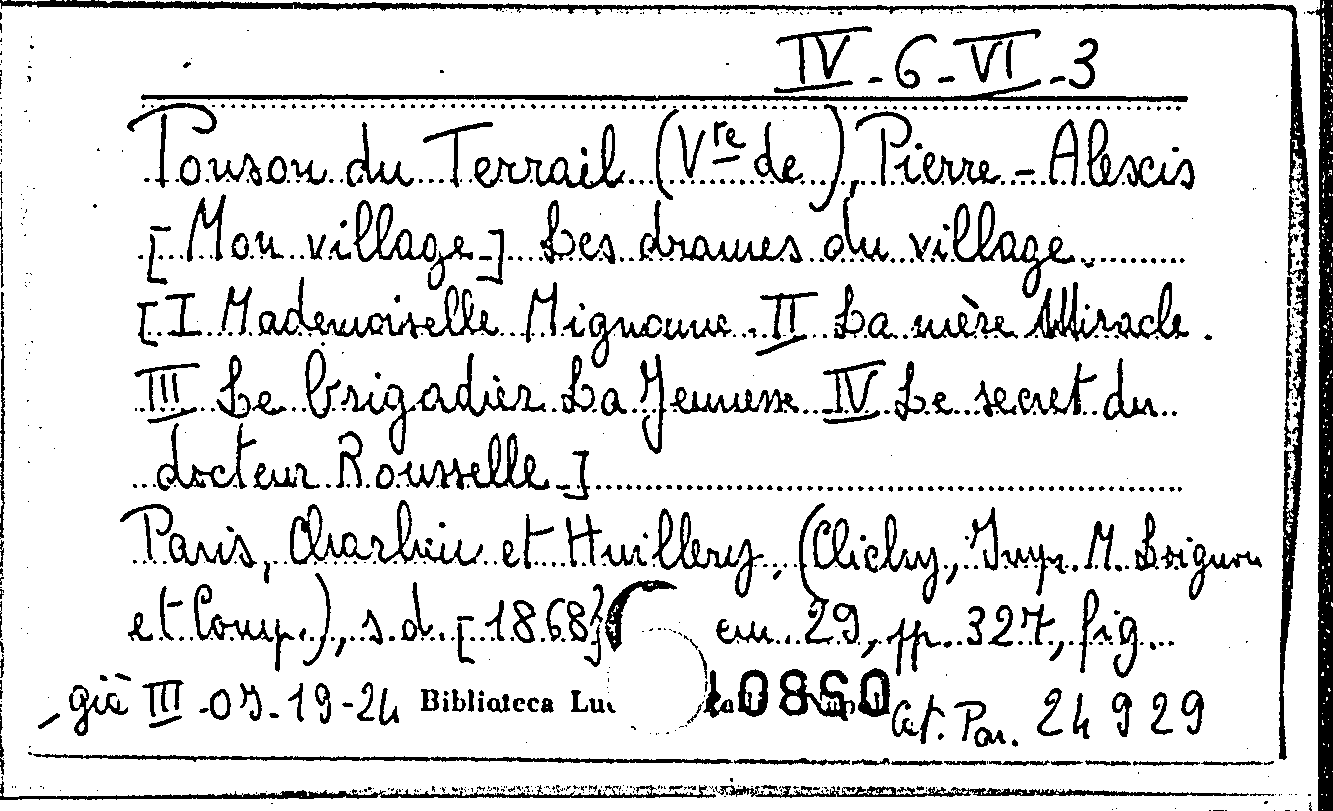 IV - 6 - VI - 3
Ponson du Terrail (Vte de), Pierre-Alexis
[Mon village] Les drames du village.
[I Mademoiselle Mignonne. II La mère Miracle.
III Le brigadier La Jeunesse IV Le secret du
docteur Rousselle.]
Paris, Charlieu et Huillery, (Clichy, Imp. M. Loignon
et Comp.), s.d. [1868] cm. 29, pp. 327, fig.
già III - 19-24 Biblioteca Cat. Par. 24929